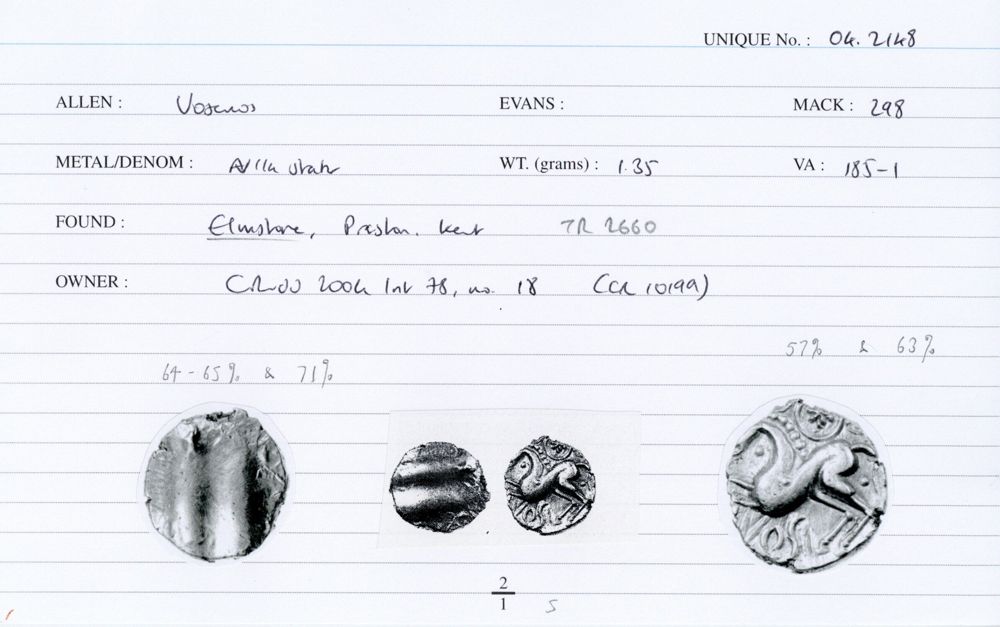 UNIQUE No. : 04. 2148
ALLEN : Vosenos EVANS : MACK : 298
METAL/DENOM : 1/4 stater WT. (grams) : 1.35 VA : 185-1
FOUND : Elmstone, Preston, Kent TR 2660
OWNER : 2004 78, no. 18 (CR 10199)
57% & 63%
64-65% & 71%
VOSII
2
1 S